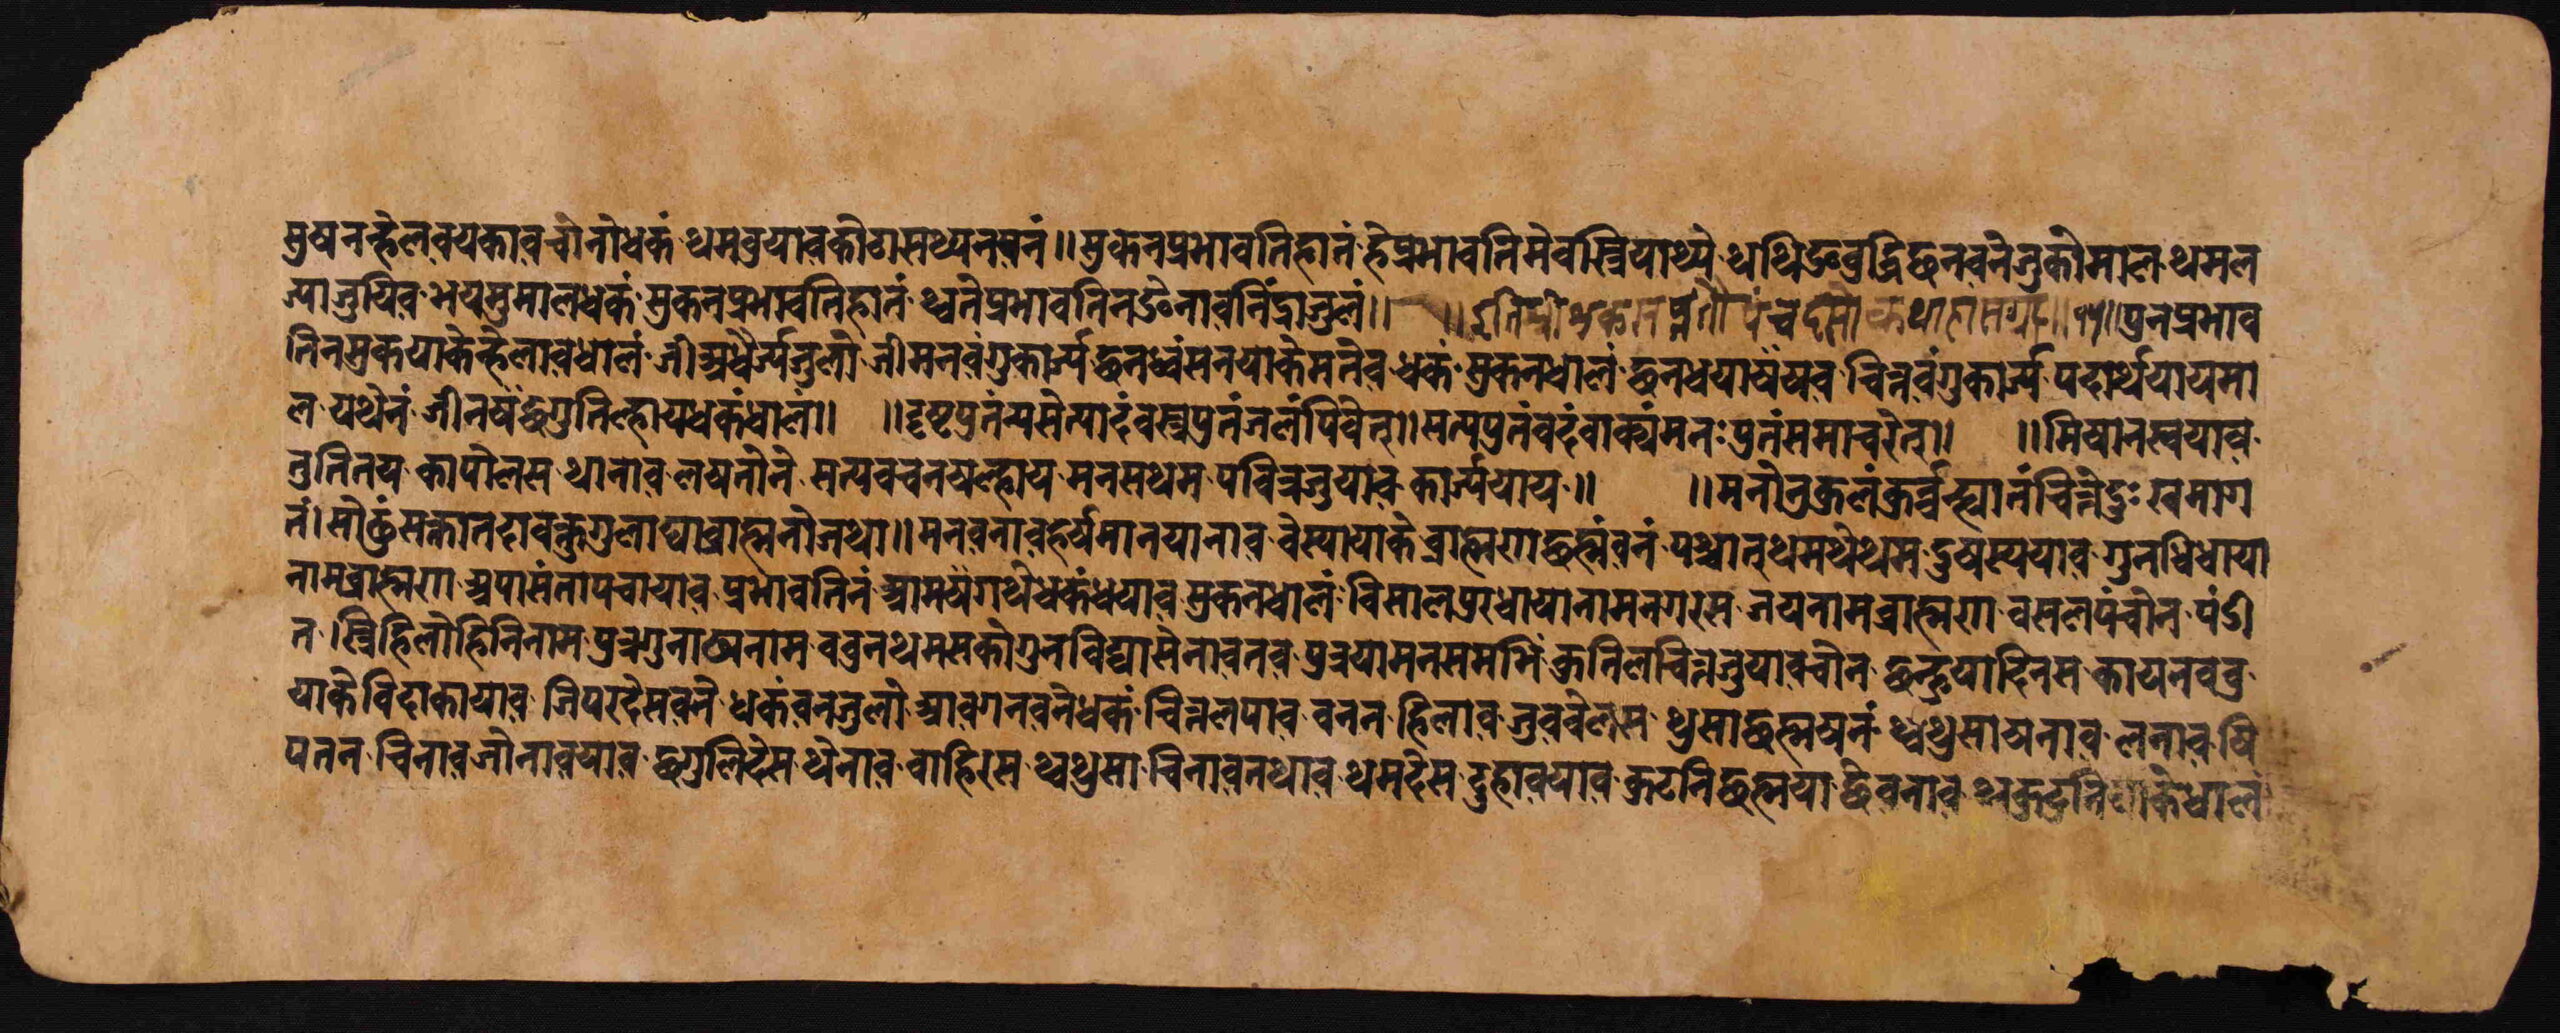 पुषनन्हेलवयकावचोनोधकं थमवुयावकोठासथ्यनवनं॥ सुकनप्रभावतिह्लातं हेप्रभावतिमेवस्त्रियाथ्ये थथिङबुद्धिछनवने जुकोमाल थमल
ज्याजुयिव भयमुमालधकं सुकनप्रभावतिह्लातं थ्वतेप्रभावतिनङेनावनिंद्राजुलं॥ ॥इतिश्रीशुकसप्ततौपंचदसोकथाहासमाप्तः॥१५॥पुनप्रभाव
तिनसुकयाकेन्हेलावधालं जीअधैर्ज्यजुलो जीमनवंगुकार्ज्य छनध्वंसनयाकेमतेव धकं सुकनधालं छनधयाषंषव चित्तवंगुकार्ज्य पदार्थयायमा
ल यथेनं जीनषंछगुतिल्हायधकंधालं॥ ॥दृष्टपुतंन्यसेत्पादंवस्त्रपुतंजलंपिवेत्॥सत्यपुतंवदंवाक्यंमनःपुतंसमाचरेत्॥ ॥मिषानस्वयाव
तुतितय कापोलस थानाव लषतोने सत्यवचनषल्हाय मनसथम पवित्रजुयाव कार्ज्ययाय॥ ॥मनोनुकुलंकुर्व्वन्ह्यातंचित्तेदुःखमाग
तं।सौठुंसक्तातदावक्तुगुलाद्याब्राह्मनोजथा॥मनवनावहर्यमानयानाव वेस्यायाके ब्राह्मणछह्मंवनं पश्चात्थमथेथम दुषस्ययाव गुनधिधाया
नामब्राह्मण अपासंतापचायाव प्रभावतिनं आमषंगथेधकंधयाव सुकनधालं विसालपुरधायानामनगरस जयनामब्राह्मण वसलपंचोन पंडि
त।स्त्रिहिलोहिनिनाम पुत्रगुनाठ्यनाम ववुनथमसकोगुनविद्यासेनावतव पुत्रयामनसमभिं क्रतिलचित्तजुयावचोन छन्हुयादिनस कायनववु
याके विदाकायाव जिपरदेसवने धकंवनजुलो आवगनवनेधकं चित्तलपाव वनन हिलाव जुववेलस थुसाछह्मषनं थ्वथुसाषनाव लनाव षि
पतन चिनाव जोनावयाव छगुलिदेस थेनाव वाहिरस थ्वथुसा चिनावतथाव थमदेस दुहावयाव कुटनिछह्मया छेवनाव थ्वकुटनियाकेधालं